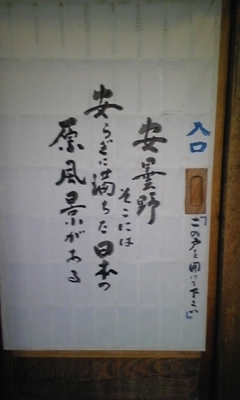 入口
「この戸を開けて下さい」
安曇野
そこには
安らぎに満ちた日本の
原風景がある